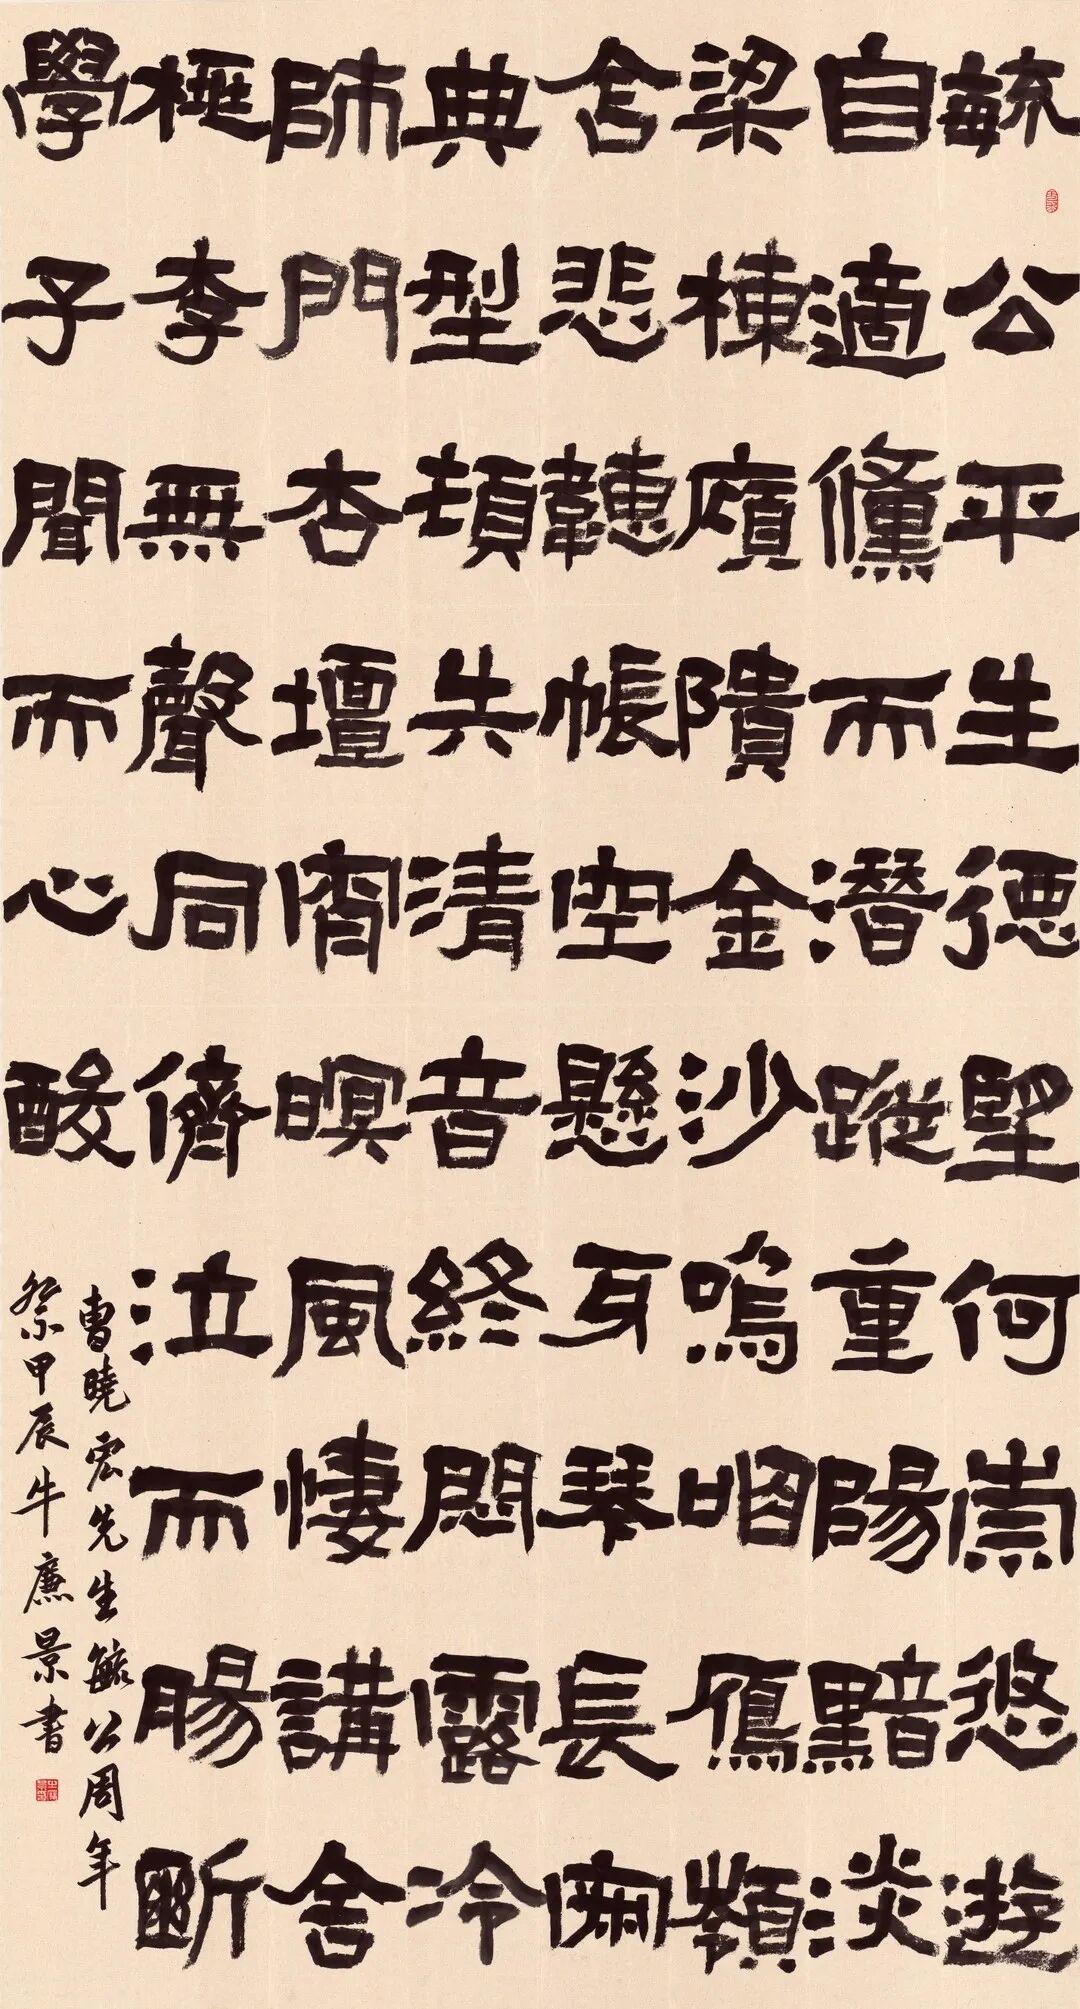 毓公平生德望何崇悠遊
自適儵而潛蹤重陽黯淡
梁棟廎隤金沙嗚咽鴈嶺
含悲韢帳空懸牙琴長
典型頓失清音終悶露冷
師門杏壇宵暝風悽講舍
桃李無聲同儕泣而腸斷
學子聞而心酸
曹曉宏先生毓公周年
祭甲辰牛廉景書